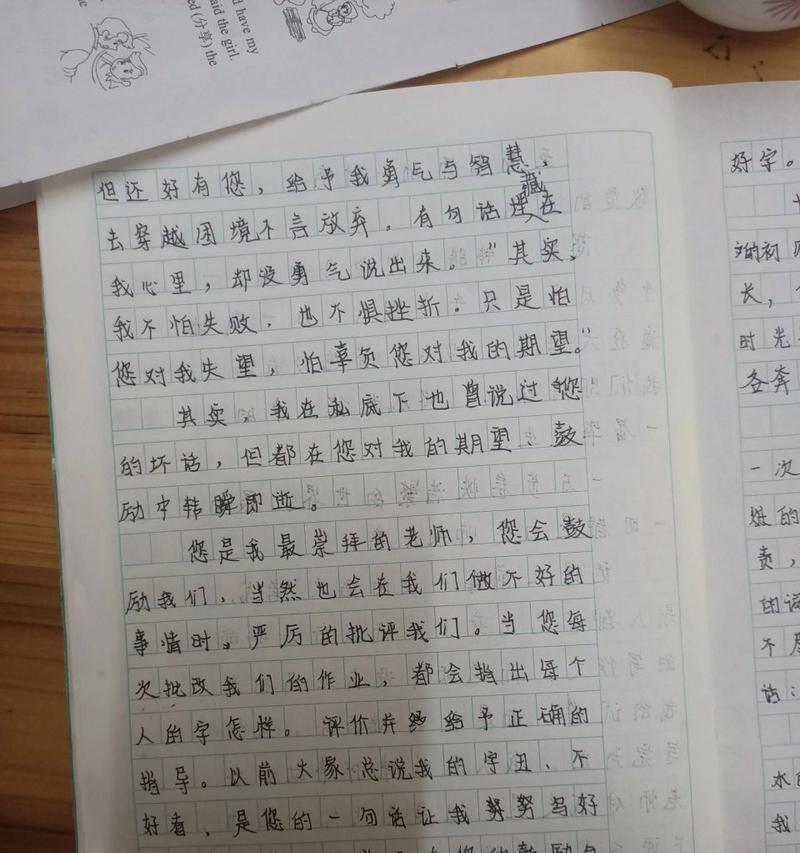 d have my
aid the girl.
ed (分享) the
the
但还好有您，给予我勇气与智慧，
去穿越困境不言放弃。有句话埋藏在
我心里，却没勇气说出来。“其实，
我不怕失败，也不惧挫折。只是怕
您对我失望，怕辜负您对我的期望。”
其实，我在私底下也曾说过您
的坏话，但都在您对我的期望、鼓
励中转瞬即逝。
您是我最崇拜的老师，您会鼓
励我们，当然也会在我们做不好的
事情时，严厉的批评我们。当您每
次批改我们的作业，都会指出每个
人的字怎样。评价并给予正确的
指导。以前大家总说我的字丑、不
好看，是您的一句话让我努努写好
好字。
的初
长，
时光
各奔
一次
姓的
责，
的
不
话：
水
我